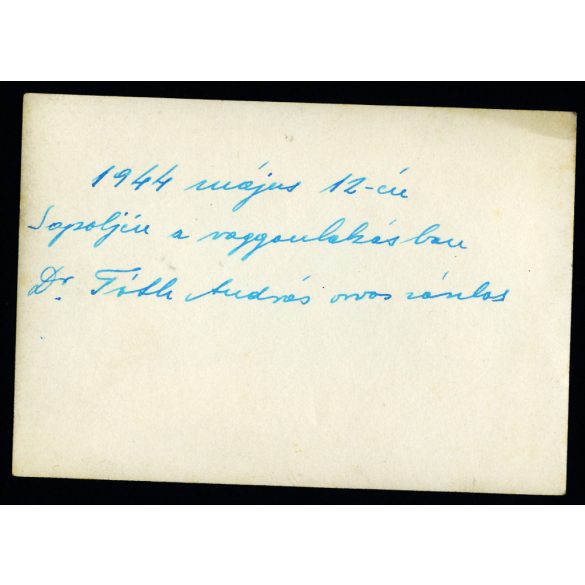 1944 május 12-én
Sapoljén a vaggonlakásban
Dr. Tóth András orvos zászlós